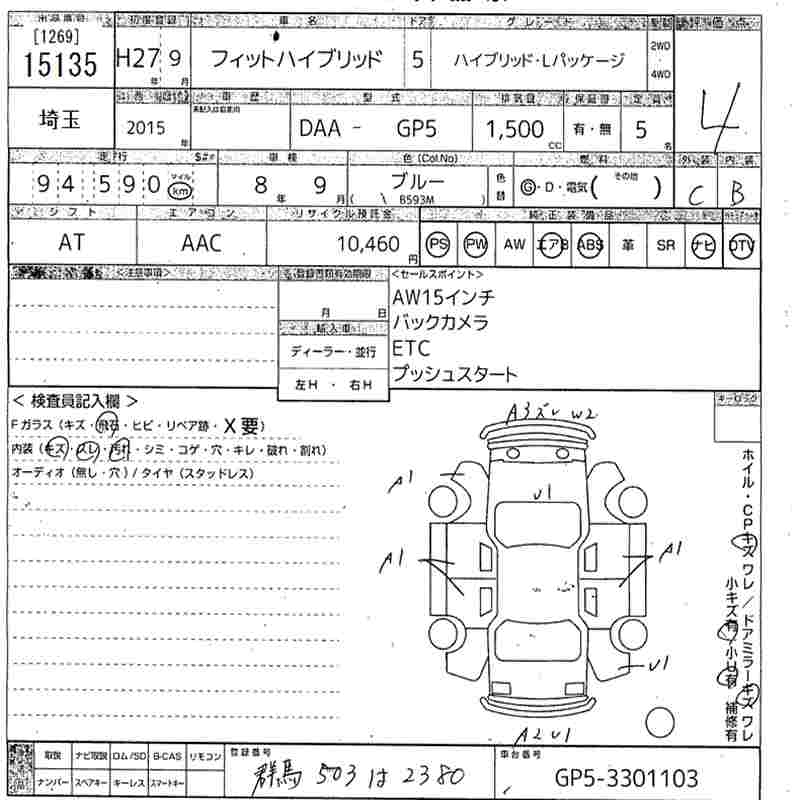 出品番号 初度登録 車名 ドア グレード 駆動 総評価点
[1269]
15135 H27年 9月 フィットハイブリッド 5 ハイブリッド・Lパッケージ 2WD ・ 4WD 4
車歴 型式 排気量 保証書 定員
埼玉 2015年 DAA - GP5 1,500CC 有・無 5名
走行 車検 色(Col.No) 燃料 外装 内装
94590 マイル km 8年 9月 ブルー 色替 G・D・電気( その他 ) C B
( B593M )
シフト エアコン リサイクル預託金 純正装備品
AT AAC 10,460円 PS PW AW エアB ABS 革 SR ナビ DTV
<注意事項> 登録書類有効期限 <セールスポイント>
月 日 AW15インチ
輸入車 バックカメラ
ディーラー・並行 ETC
左H ・ 右H プッシュスタート
< 検査員記入欄 > キーロック
Fガラス (キズ・飛石・ヒビ・リペア跡・X要)
内装 (キズ・スレ・汚れ・シミ・コゲ・穴・キレ・破れ・割れ)
オーディオ (無し・穴) / タイヤ (スタッドレス)
A3ズレ W2
A1
U1
A1
A1
U1
A2 U1
ホイル・CPキズ ワレ / ドアミラーキズ ワレ
小キズ有 / 小U有 補修有
取説 ナビ取説 ロム/SD B-CAS リモコン 登録番号 車台番号
ナンバー スペアキー キーレス スマートキー 群馬 503 は 2380 GP5-3301103